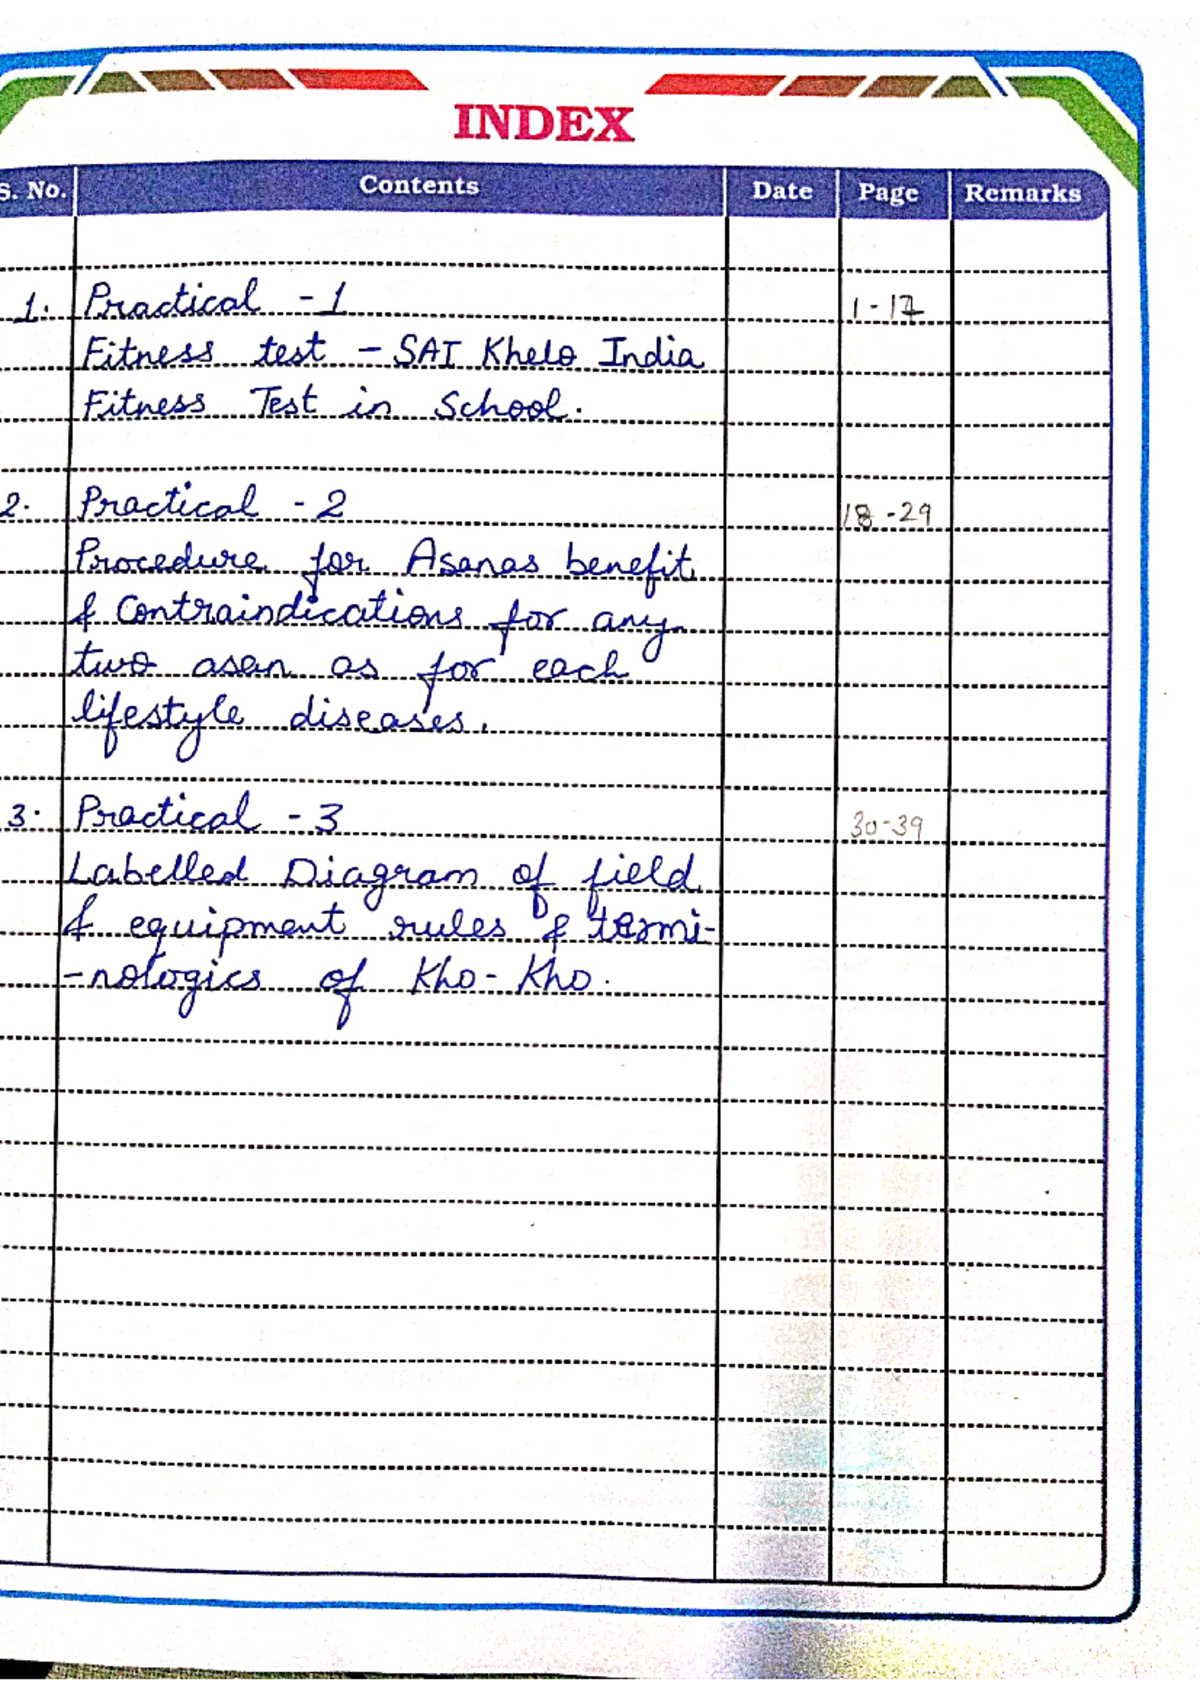 INDEX
S. No. Contents Date Page Remarks
1. Practical - 1 1 - 17
Fitness test - SAI Khelo India
Fitness Test in School.
2. Practical - 2 18 - 29
Procedure for Asanas benefit
& Contraindications for any
two asan as for each
lifestyle diseases.
3. Practical - 3 30-39
Labelled Diagram of field
& equipment rules & termi-
-nologics of Kho- Kho.